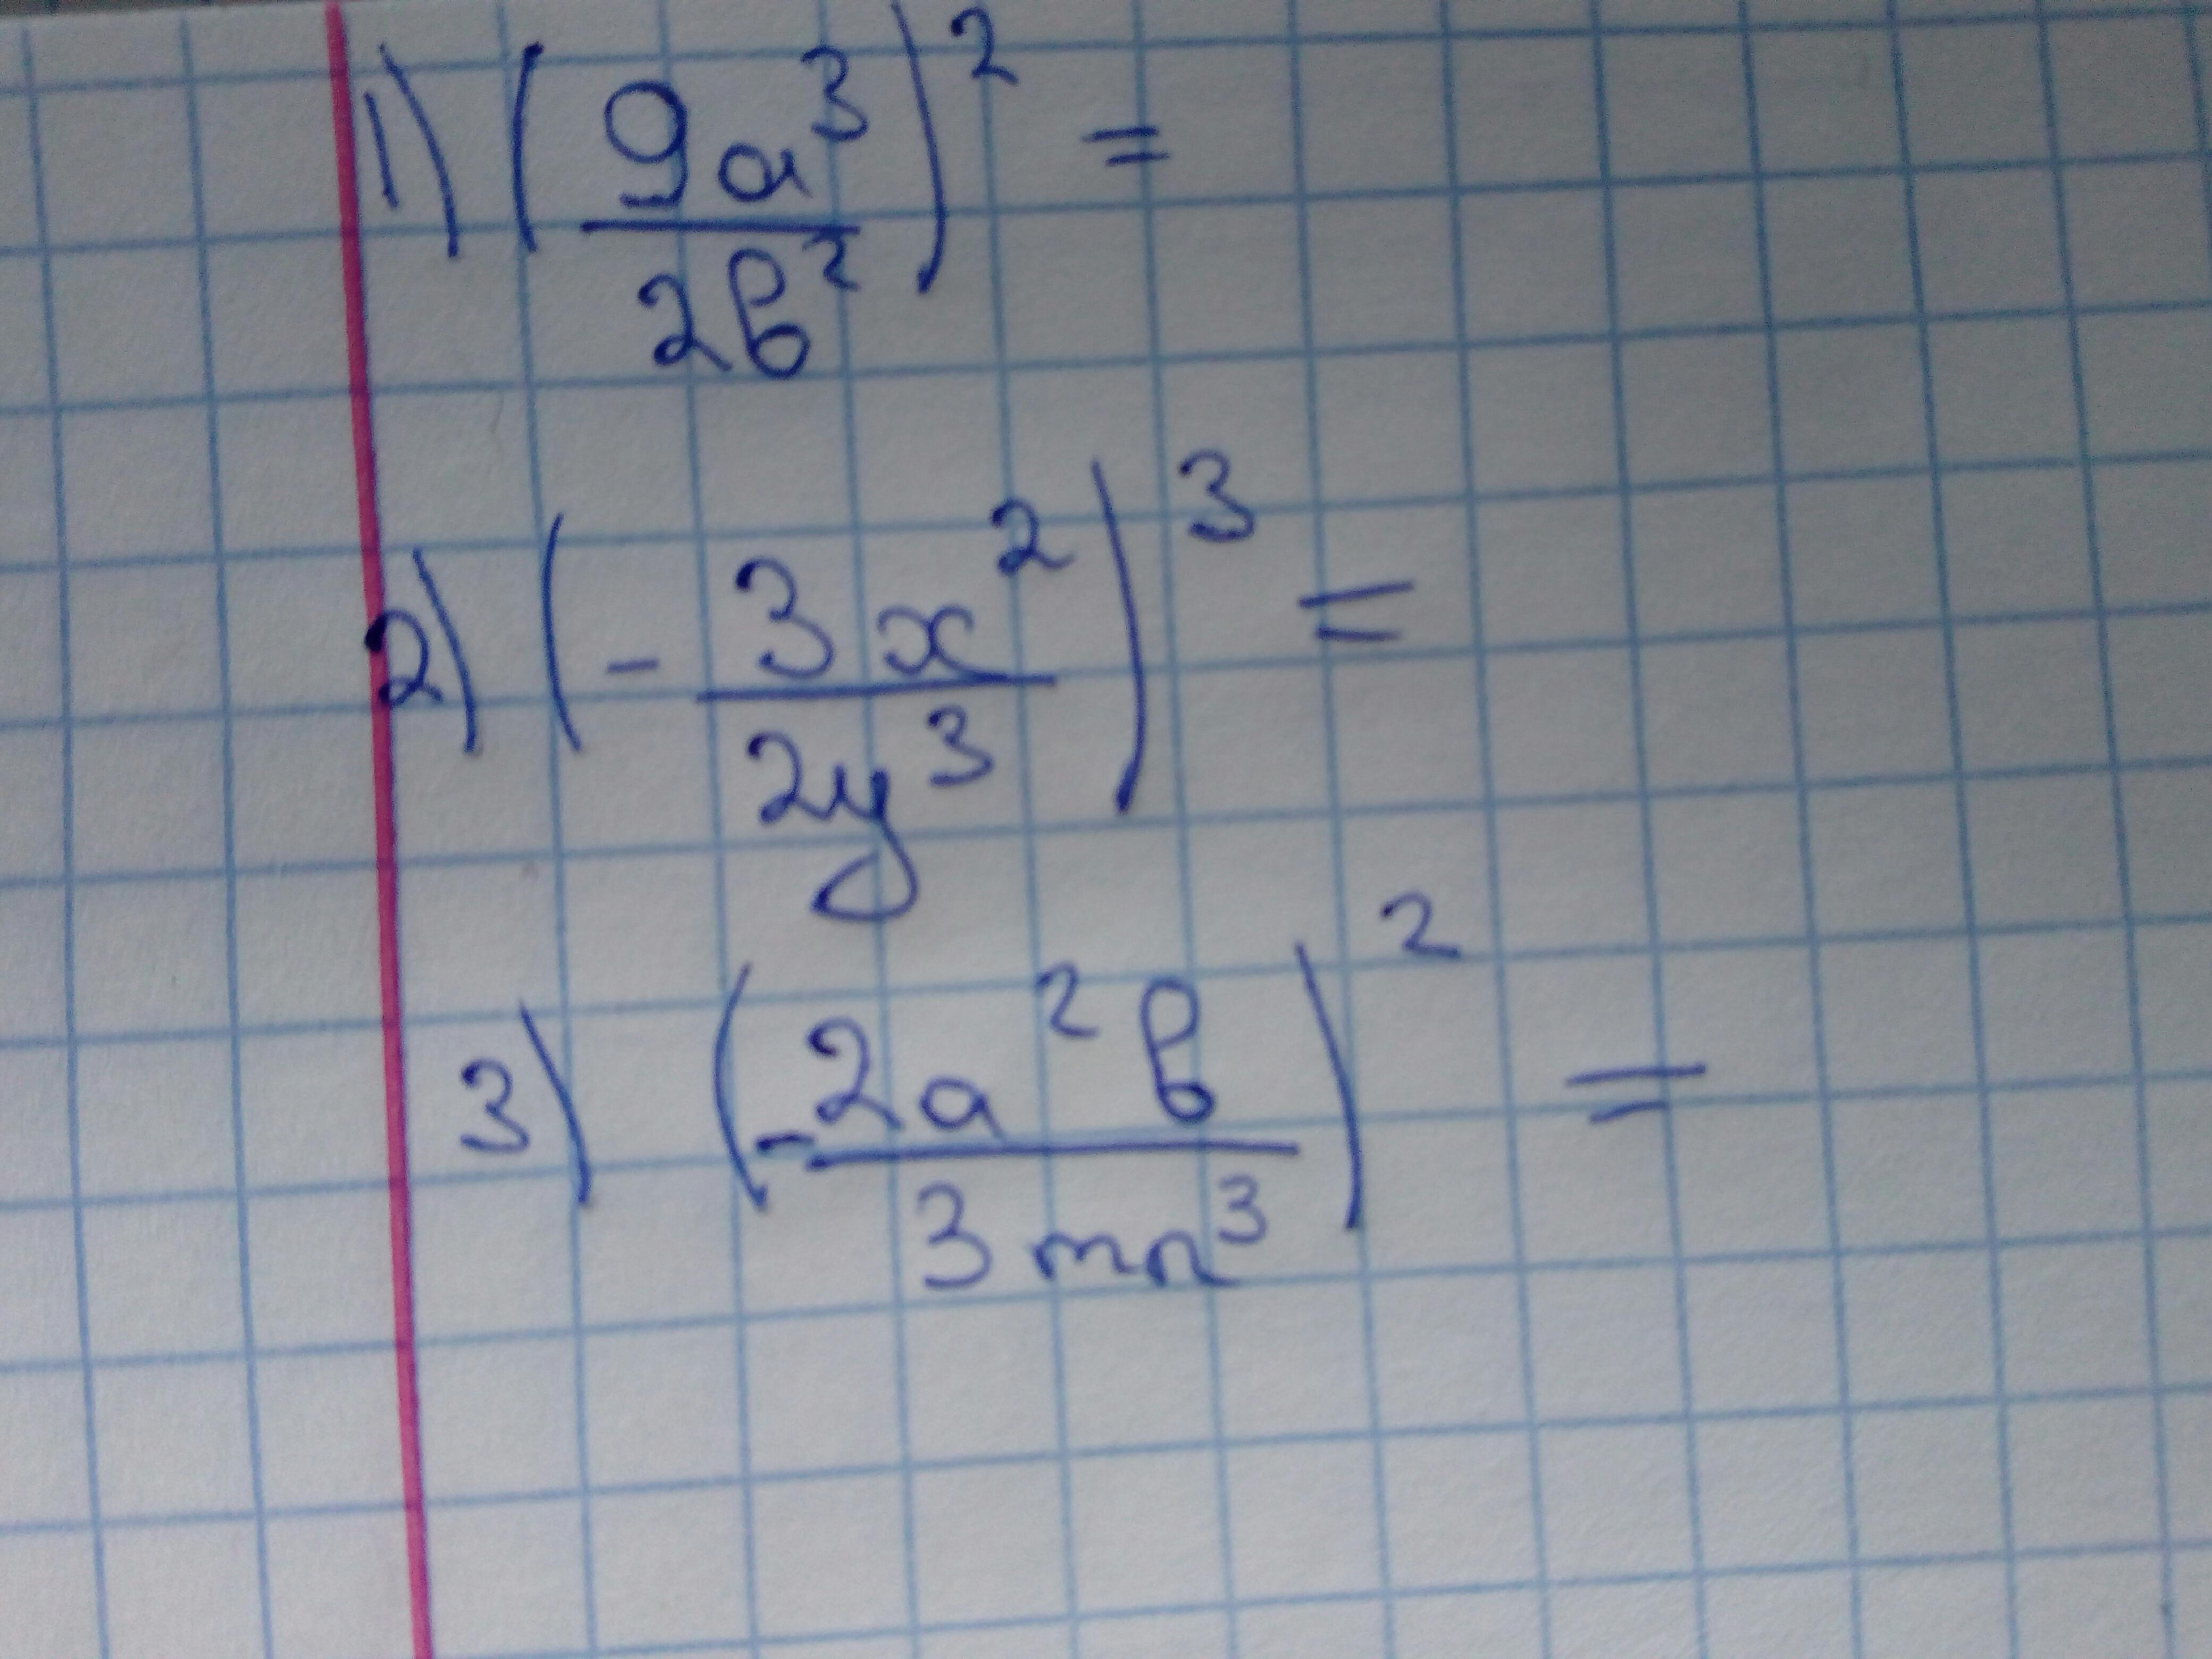 1) (9a³/2b²)² =
2) (- 3x²/2y³)³ =
3) (- 2a²b/3mn³)² =